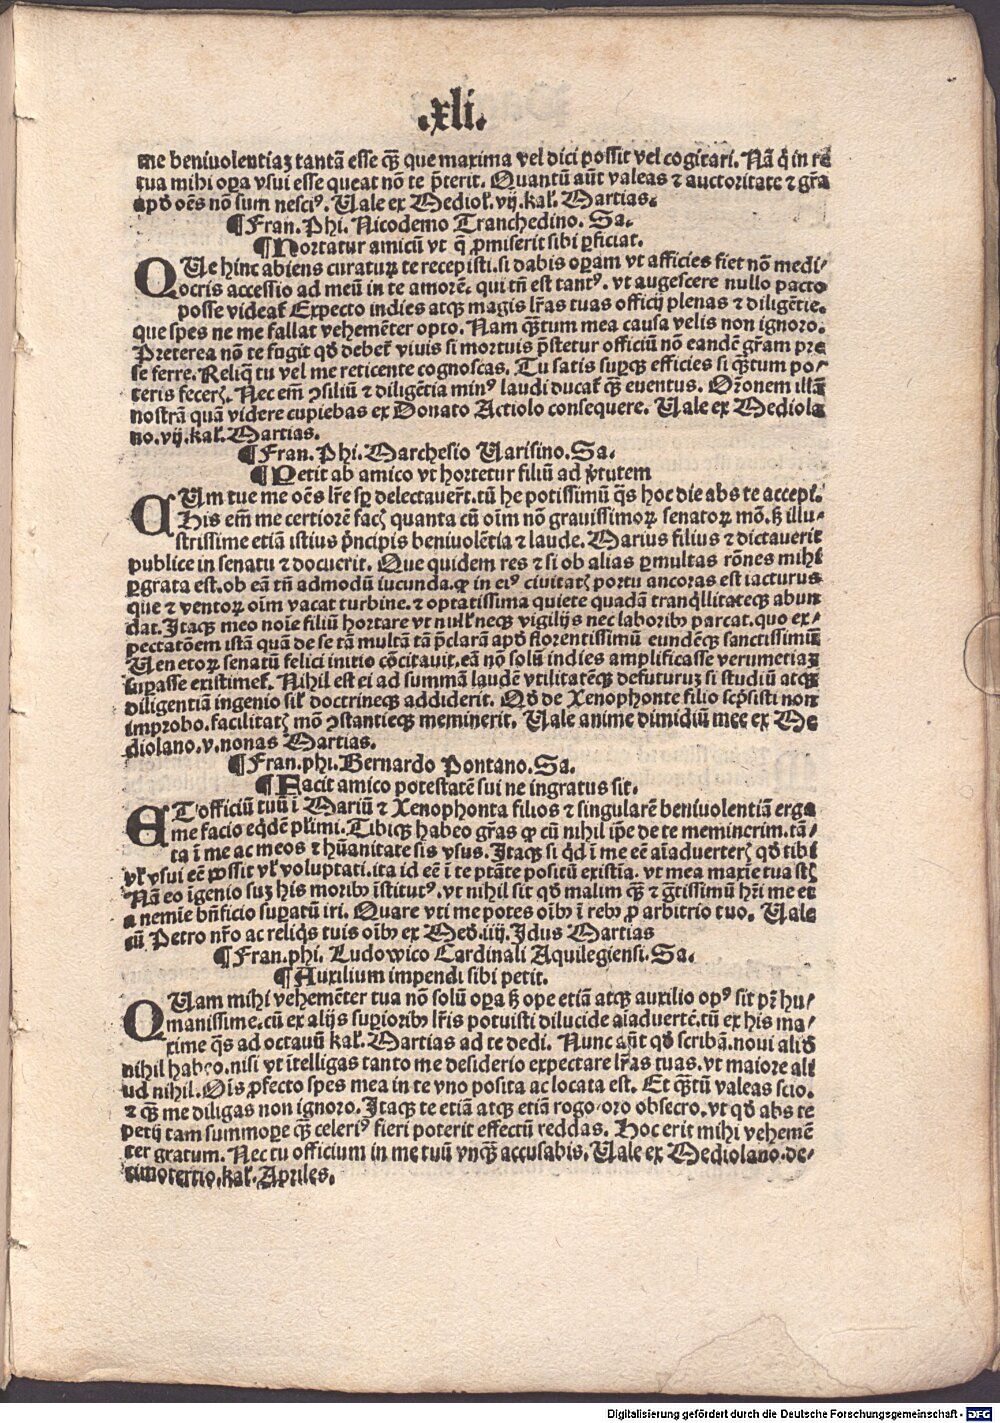 .xli.
me beniuolentiaꝫ tantā esse ꝙ̄ que maxima vel dici possit vel cogitari. Nā q̄ in re
tua mihi oꝑa vsui esse queat nō te p̄terit. Quantū aūt valeas ⁊ auctoritate ⁊ gr̄a
apd̄ oēs nō sum nesciꝰ. Uale ex Mediol̄. vij. kal̄. Martias.
¶ Fran. Phi. Nicodemo Tranchedino. Sa.
¶ Hortatur amicū vt q̄ ꝓmiserit sibi ꝑficiat.
QUe hinc abiens curaturꝝ te recepisti. si dabis oꝑam vt afficies fiet nō medi/
ocris accessio ad meū in te amorē. qui tn̄ est tantꝰ. vt augescere nullo pacto
posse videat̄ Expecto indies atqꝫ magis lr̄as tuas officij plenas ⁊ diligētie.
que spes ne me fallat vehemēter opto. Nam ꝙ̄tum mea causa velis non ignoro.
Preterea nō te fugit qd̄ debet̄ viuis si mortuis p̄stetur officiū nō eandē gr̄am pre
se ferre. Reliq̄ tu vel me reticente cognoscas. Tu satis suꝑqꝫ efficies si ꝙ̄tum po/
teris fecerꝭ. Nec em̄ ꝯsiliū ⁊ diligētia minꝰ laudi ducat̄ ꝙ̄ euentus. Or̄onem illā
nostrā quā videre cupiebas ex Donato Actiolo consequere. Uale ex Mediola
no. vij. kal̄. Martias.
¶ Fran. Phi. Marchesio Uarisino. Sa.
¶ Petit ab amico vt hortetur filiū ad v̄tutem
CUm tue me oēs lr̄e sꝑ delectauer̄t. tū he potissimū q̄s hoc die abs te accepi.
His em̄ me certiorē facꝭ quanta cū oīm nō grauissimoꝝ senatoꝝ mō. ꝫ illu/
strissime etiā istius p̄ncipis beniuolētia ⁊ laude. Marius filius ⁊ dictauerit
publice in senatu ⁊ docuerit. Que quidem res ⁊ si ob alias ꝑmultas rōnes mihi
ꝑgrata est. ob eā tn̄ admodū iucunda. ꝙ in eiꝰ ciuitatꝭ portu ancoras est iacturus
que ⁊ ventoꝝ oīm vacat turbine. ⁊ optatissima quiete quadā tranq̄llitateqꝫ abun
dat. Itaqꝫ meo noīe filiū hortare vt null̄ neqꝫ vigilijs nec laboribꝫ parcat. quo ex/
pectatōem istā quā de se tā multā tā p̄clarā apd̄ florentissimū eundēqꝫ sanctissimū
Uenetoꝝ senatū felici initio cōcitauit. eā nō solū indies amplificasse verumetiaꝫ
suꝑasse existimet̄. Nihil est ei ad summā laudē vtilitatēqꝫ defuturuꝫ si studiū atqꝫ
diligentiā ingenio sil̄ doctrineqꝫ addiderit. Qd̄ de Xenophonte filio scp̄sisti non
improbo. facilitatꝭ mō ꝯstantieqꝫ meminerit. Uale anime dimidiū mee ex Me
diolano. v. nonas Martias.
¶ Fran. phi. Bernardo Pontano. Sa.
¶ Facit amico potestatē sui ne ingratus sit.
ET officiū tuū ī Mariū ⁊ Xenophonta filios ⁊ singularē beniuolentiā erga
me facio eq̄dē pl̄imi. Tibiqꝫ habeo gr̄as ꝙ cū nihil ip̄e de te meminerim. tā/
ta ī me ac meos ⁊ hūanitate sis vsus. Itaqꝫ si q̄d ī me eē aīaduerterꝭ qd̄ tibi
vl̄ vsui eē possit vl̄ voluptati. ita id eē ī te ptāte positū existīa. vt mea maxīe tua stꝭ
Nā eo īgenio suꝫ his moribꝫ īstitutꝰ. vt nihil sit qd̄ malim ꝙ̄ ⁊ gr̄tissimū hr̄i me et
a nemīe bn̄ficio suꝑatū iri. Quare vti me potes oībꝫ ī rebꝫ ꝓ arbitrio tuo. Uale
cū Petro nr̄o ac reliq̄s tuis oībꝫ ex Med̄. iiij. Idus Martias
¶ Fran. phi. Ludowico Cardinali Aquilegiensi. Sa.
¶ Auxilium impendi sibi petit.
QUam mihi vehemēter tua nō solū oꝑa ꝫ ope etiā atqꝫ auxilio opꝰ sit pr̄ hu/
manissime. cū ex alijs suꝑioribꝫ lr̄is potuisti dilucide aīaduertē. tū ex his ma/
xime q̄s ad octauū kal̄. Martias ad te dedi. Nunc aūt qd̄ scribā. noui aliqd̄
nihil habeo. nisi vt ītelligas tanto me desiderio expectare lr̄as tuas. vt maiore ali
ud nihil. Oīs ꝓfecto spes mea in te vno posita ac locata est. Et ꝙ̄tū valeas scio.
⁊ ꝙ̄ me diligas non ignoro. Itaqꝫ te etiā atqꝫ etiā rogo oro obsecro. vt qd̄ abs te
petij tam summoꝑe ꝙ̄ celeriꝰ fieri poterit effectū reddas. Hoc erit mihi vehemē
ter gratum. Nec tu officium in me tuū vnqꝫ accusabis. Uale ex Mediolano. de/
cimotertio. kal̄. Apriles.
Digitalisierung gefördert durch die Deutsche Forschungsgemeinschaft - DFG